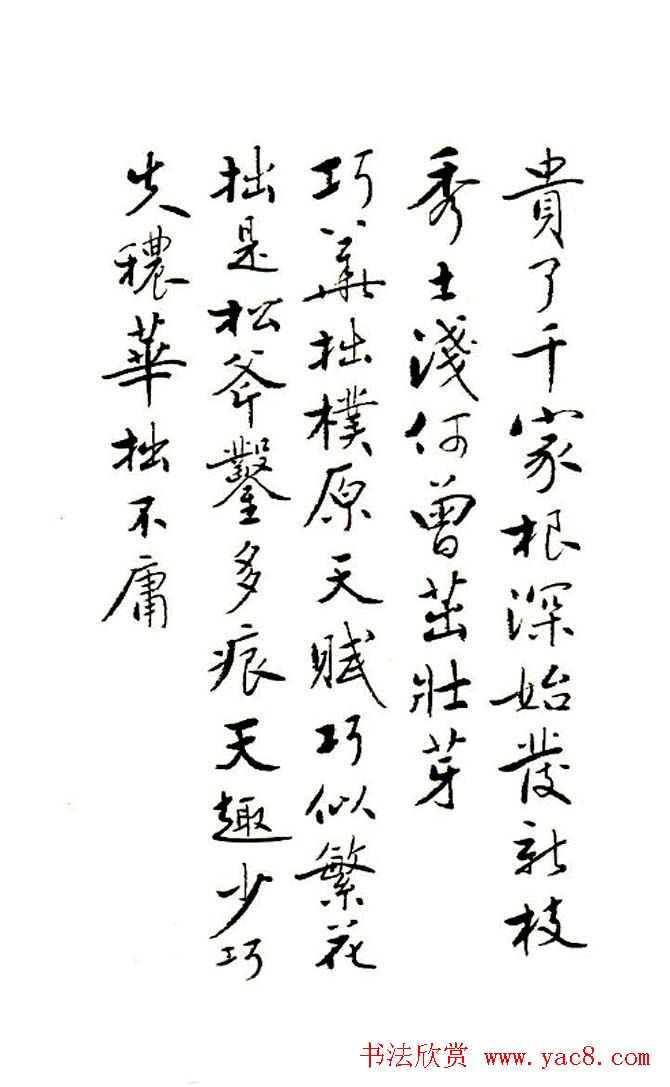 貴了千家根深始發新枝
秀土淺何曾茁壯芽
巧華拙樸原天賦巧似繁花
拙是松斧鑿多痕天趣少巧
失穠華拙不庸
书法欣赏 www.yac8.com